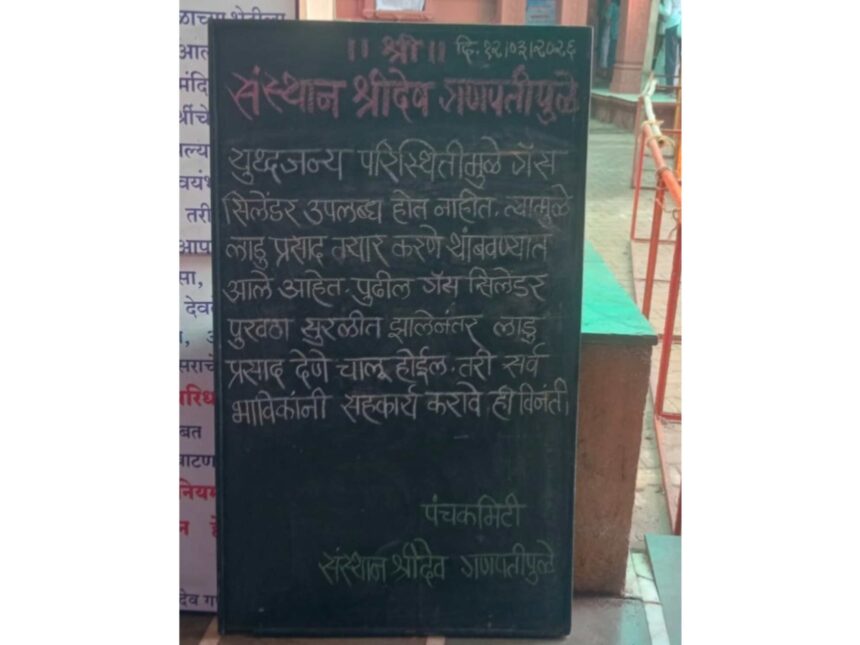 ।। श्री ।। दि. १२।०३।२०२६
संस्थान श्रीदेव गणपतीपुळे
युध्दजन्य परिस्थितीमुळे गॅस
सिलेंडर उपलब्ध होत नाहीत. त्यामुळे
लाडु प्रसाद तयार करणे थांबवण्यात
आले आहेत. पुढील गॅस सिलेंडर
पुरवठा सुरळीत झालेनंतर लाडु
प्रसाद देणे चालू होईल. तरी सर्व
भाविकांनी सहकार्य करावे ही विनंती।
पंचकमिटी
संस्थान श्रीदेव गणपतीपुळे